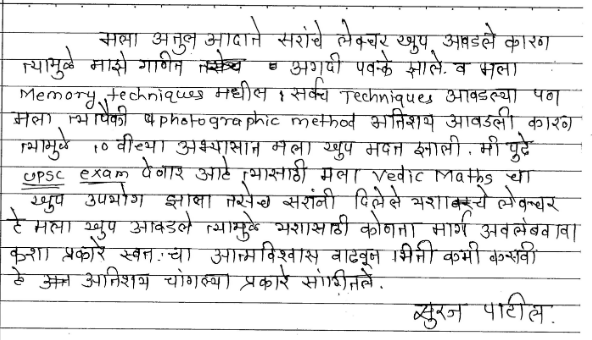 मला अतुल आदाते सरांचे लेक्चर खुप आवडले कारण
त्यामुळे माझे गणित अगदी पक्के झाले. व मला
Memory techniques मधील सर्व Techniques आवडल्या पण
मला त्यापैकी photographic method अतिशय आवडली कारण
त्यामुळे १० वीच्या अभ्यासात मला खुप मदत झाली. मी पुढे
UPSC exam देणार आहे त्यासाठी मला Vedic Maths चा
खुप उपयोग झाला तसेच सरांनी दिलेले यशाचे लेक्चर
हे मला खुप आवडले त्यामुळे यशासाठी कोणता मार्ग अवलंबवावा
कशा प्रकारे स्वतः चा आत्मविश्वास वाढवून भिती कमी करावी
हे अतिशय चांगल्या प्रकारे सांगीतले.
सुरज पाटील.